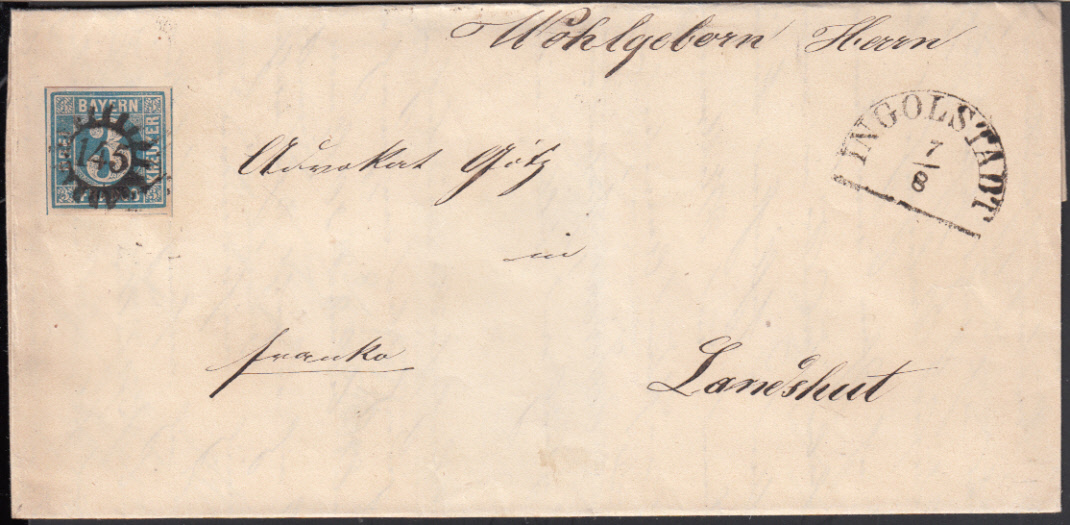 Wohlgeborn Herrn
BAYERN
DREI
KREUZER
145
INGOLSTADT
7
8
Advokat Götz
in
franko
Landshut